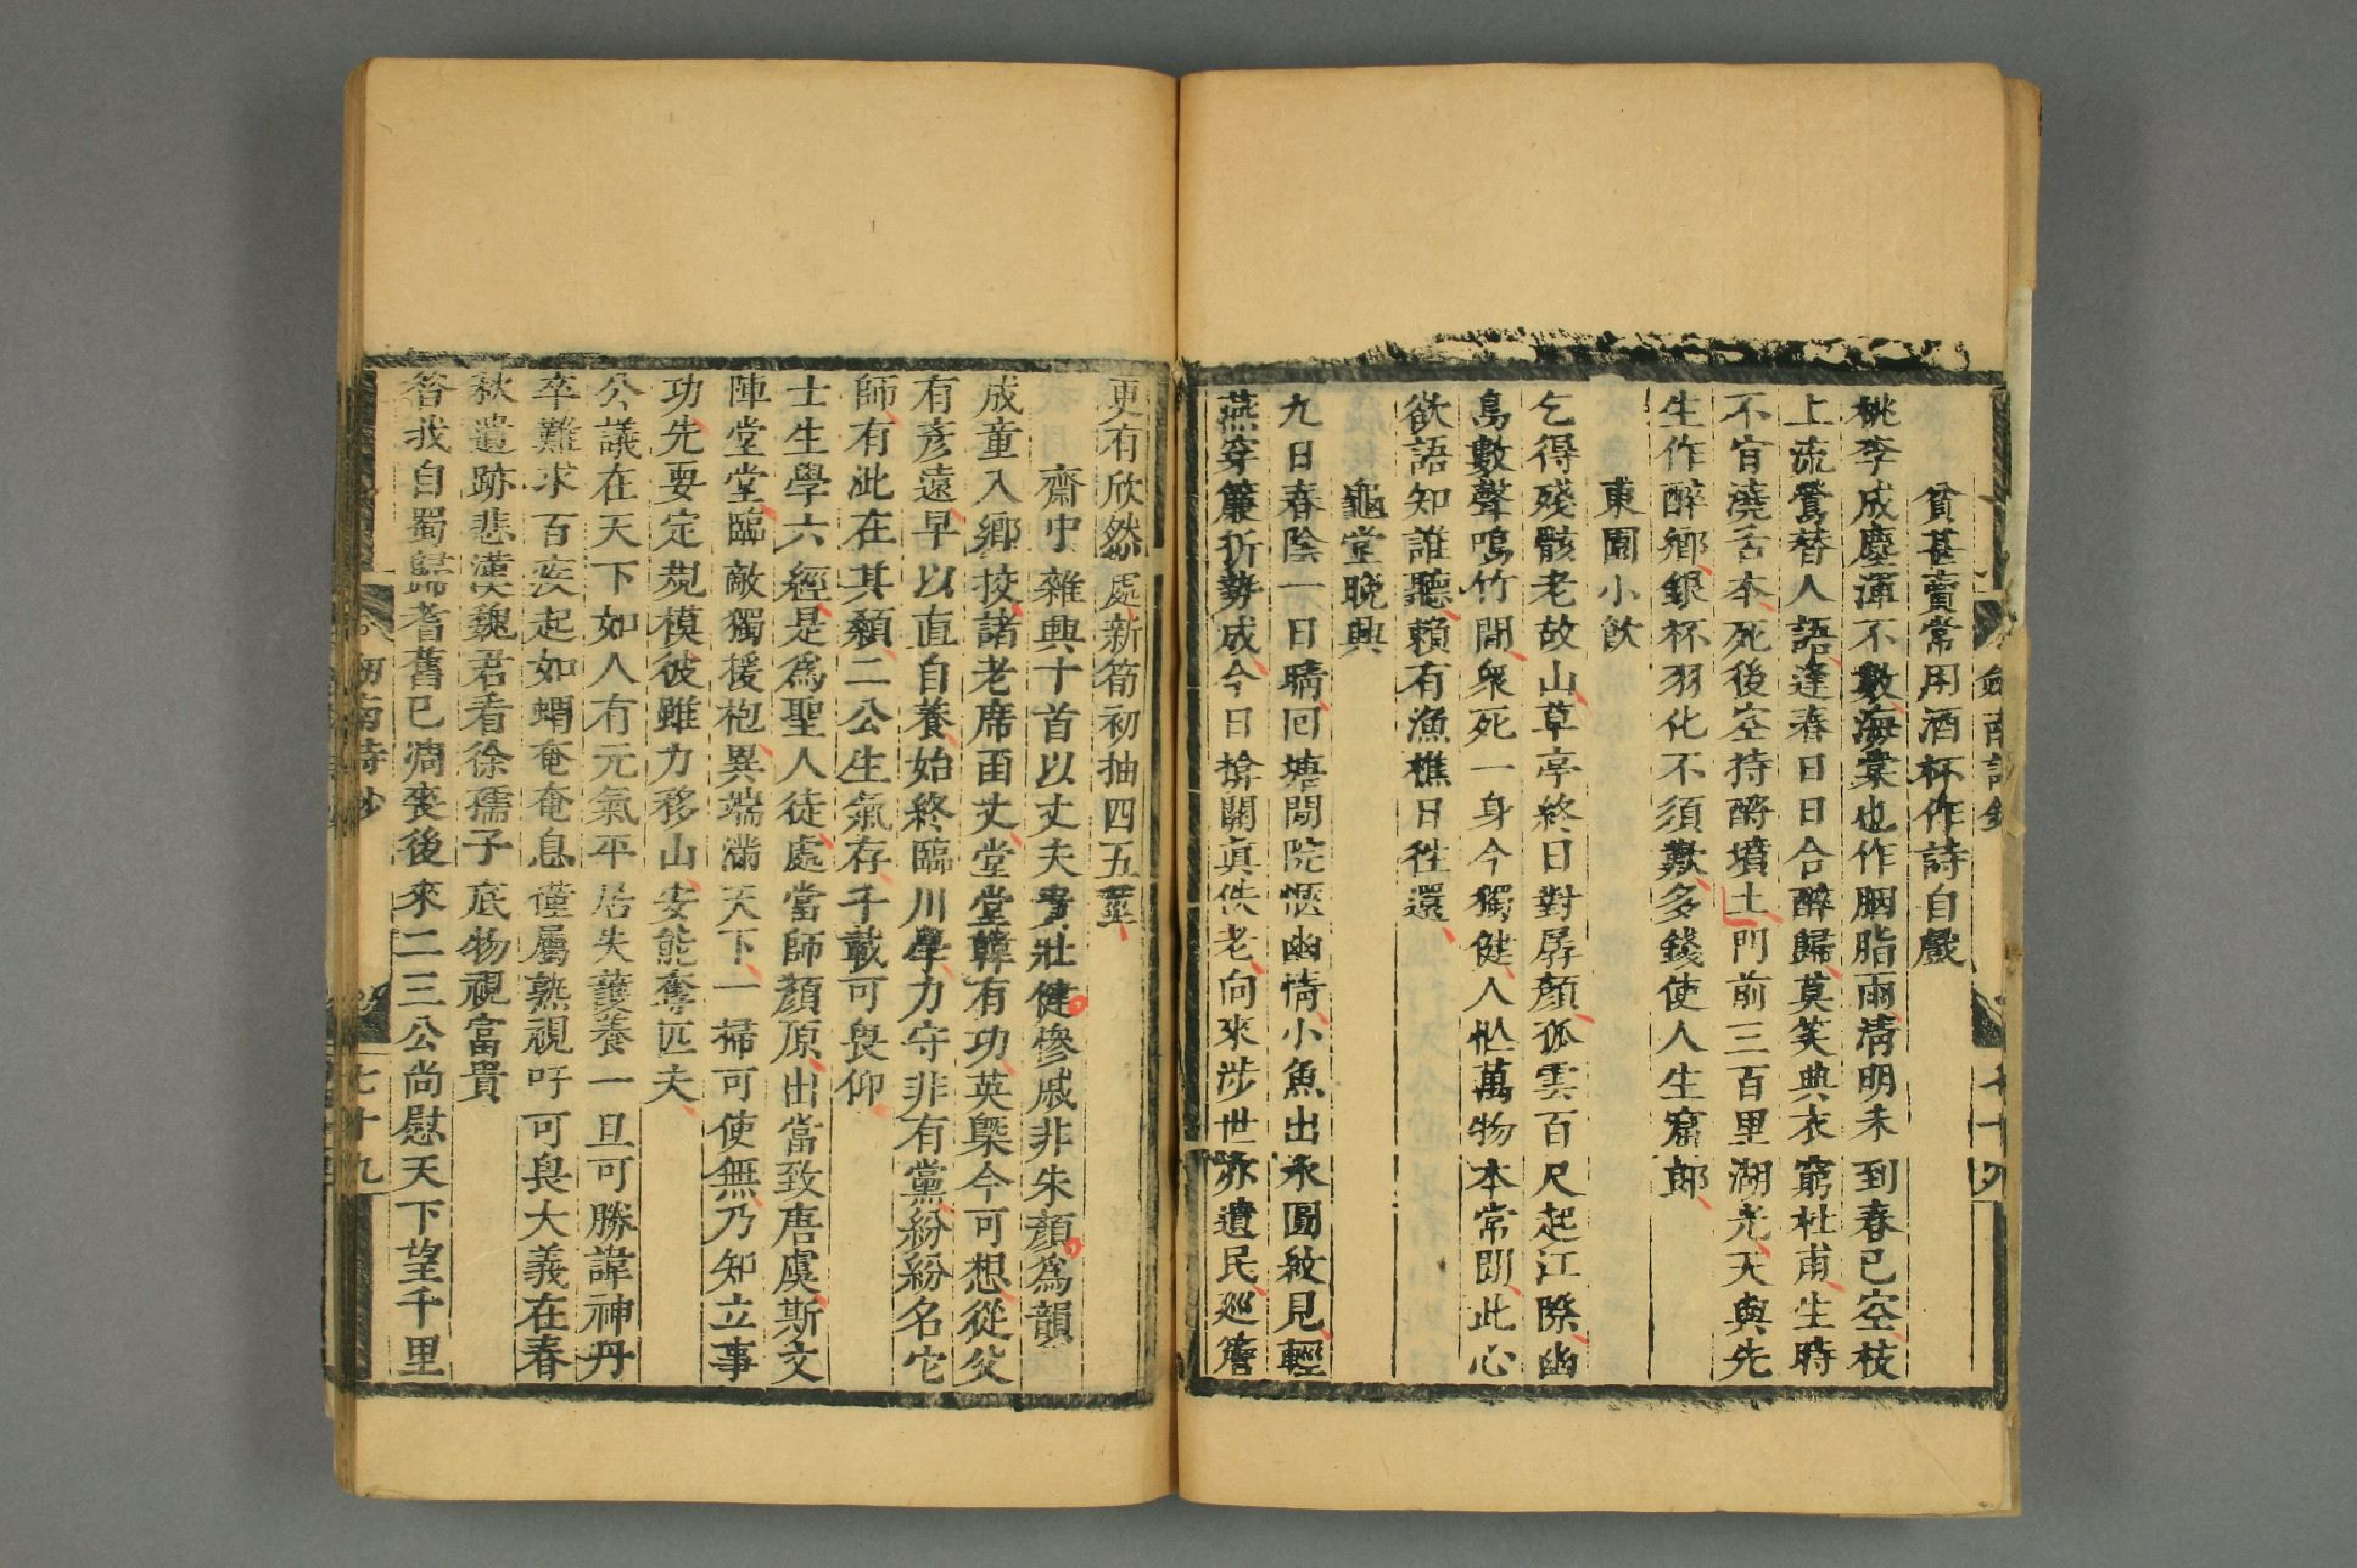 貧甚賣常用酒杯作詩自戲
桃李成塵渾不數海棠也作胭脂雨清明未到春已空枝
上流鶯替人語逢春日日合醉歸莫笑典衣窮杜甫生時
不肯澆舌本死後空持酹墳土門前三百里湖光天與先
生作醉鄉銀杯羽化不須歎多錢使人生窟郎
東園小飲
乞得殘骸老故山草亭終日對孱顏孤雲百尺起江際幽
鳥數聲鳴竹間衆死一身今獨健人忙萬物本常閒此心
欲語知誰聽賴有漁樵日徃還
龜堂晚興
九日春陰一日晴回塘閒院愜幽情小魚出水圓紋見輕
燕穿簾折勢成今日揜關真佚老向來涉世亦遺民巡簷
更有欣然處新筍初抽四五莖
齋中雜興十首以丈夫貴壯健慘戚非朱顏爲韻
成童入鄉挍諸老席函丈堂堂韓有功英槩今可想從父
有彥遠早以直自養始終臨川學力守非有黨紛紛名它
師有泚在其顙二公生氣存千載可畏仰
士生學六經是爲聖人徒處當師顏原出當致唐虞斯文
陣堂堂臨敵獨援枹異端滿天下一掃可使無乃知立事
功先要定規模彼雖力移山安能奪匹夫
公議在天下如人有元氣平居失護養一旦可勝諱神丹
卒難求百妄起如蝟奄奄息僅屬熟視吁可畏大義在春
秋遺跡悲漢魏君看徐孺子底物視富貴
昔我自蜀歸耆舊已凋喪後來二三公尚慰天下望千里
南詩鈔
七十九